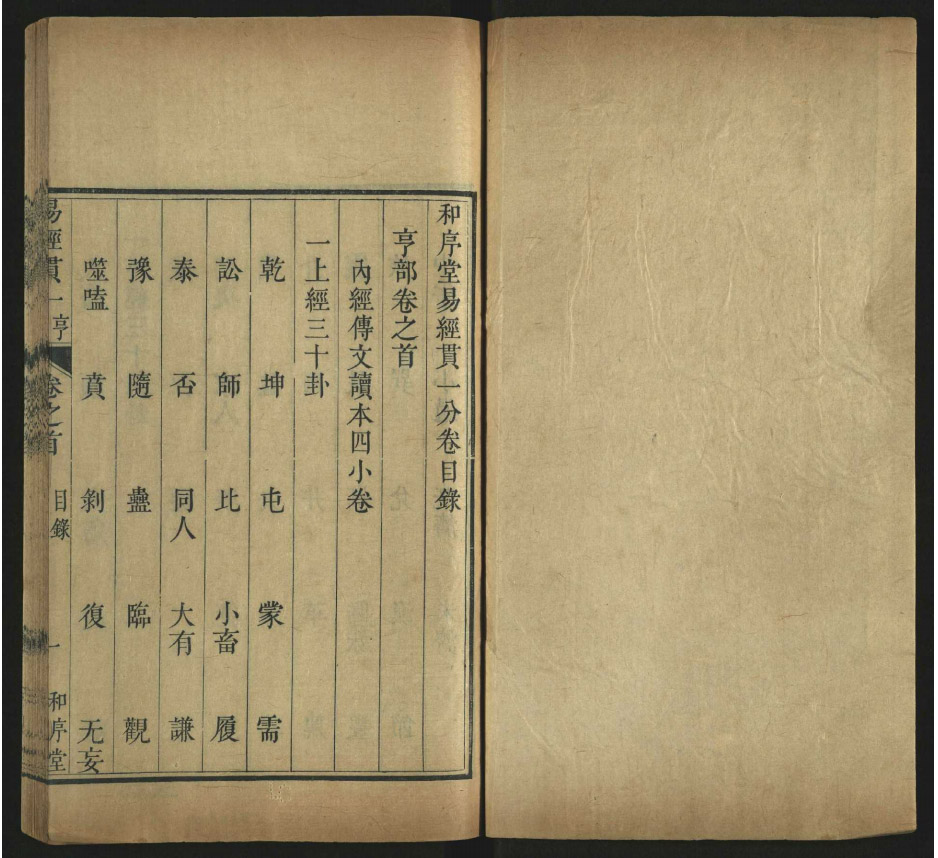 和序堂易經貫一分卷目錄
亨部卷之首
內經傳文讀本四小卷
一上經三十卦
乾 坤 屯 蒙 需
訟 師 比 小畜 履
泰 否 同人 大有 謙
豫 隨 蠱 臨 觀
噬嗑 賁 剝 復 无妄
易經貫一 亨 卷之首 目錄 一 和序堂